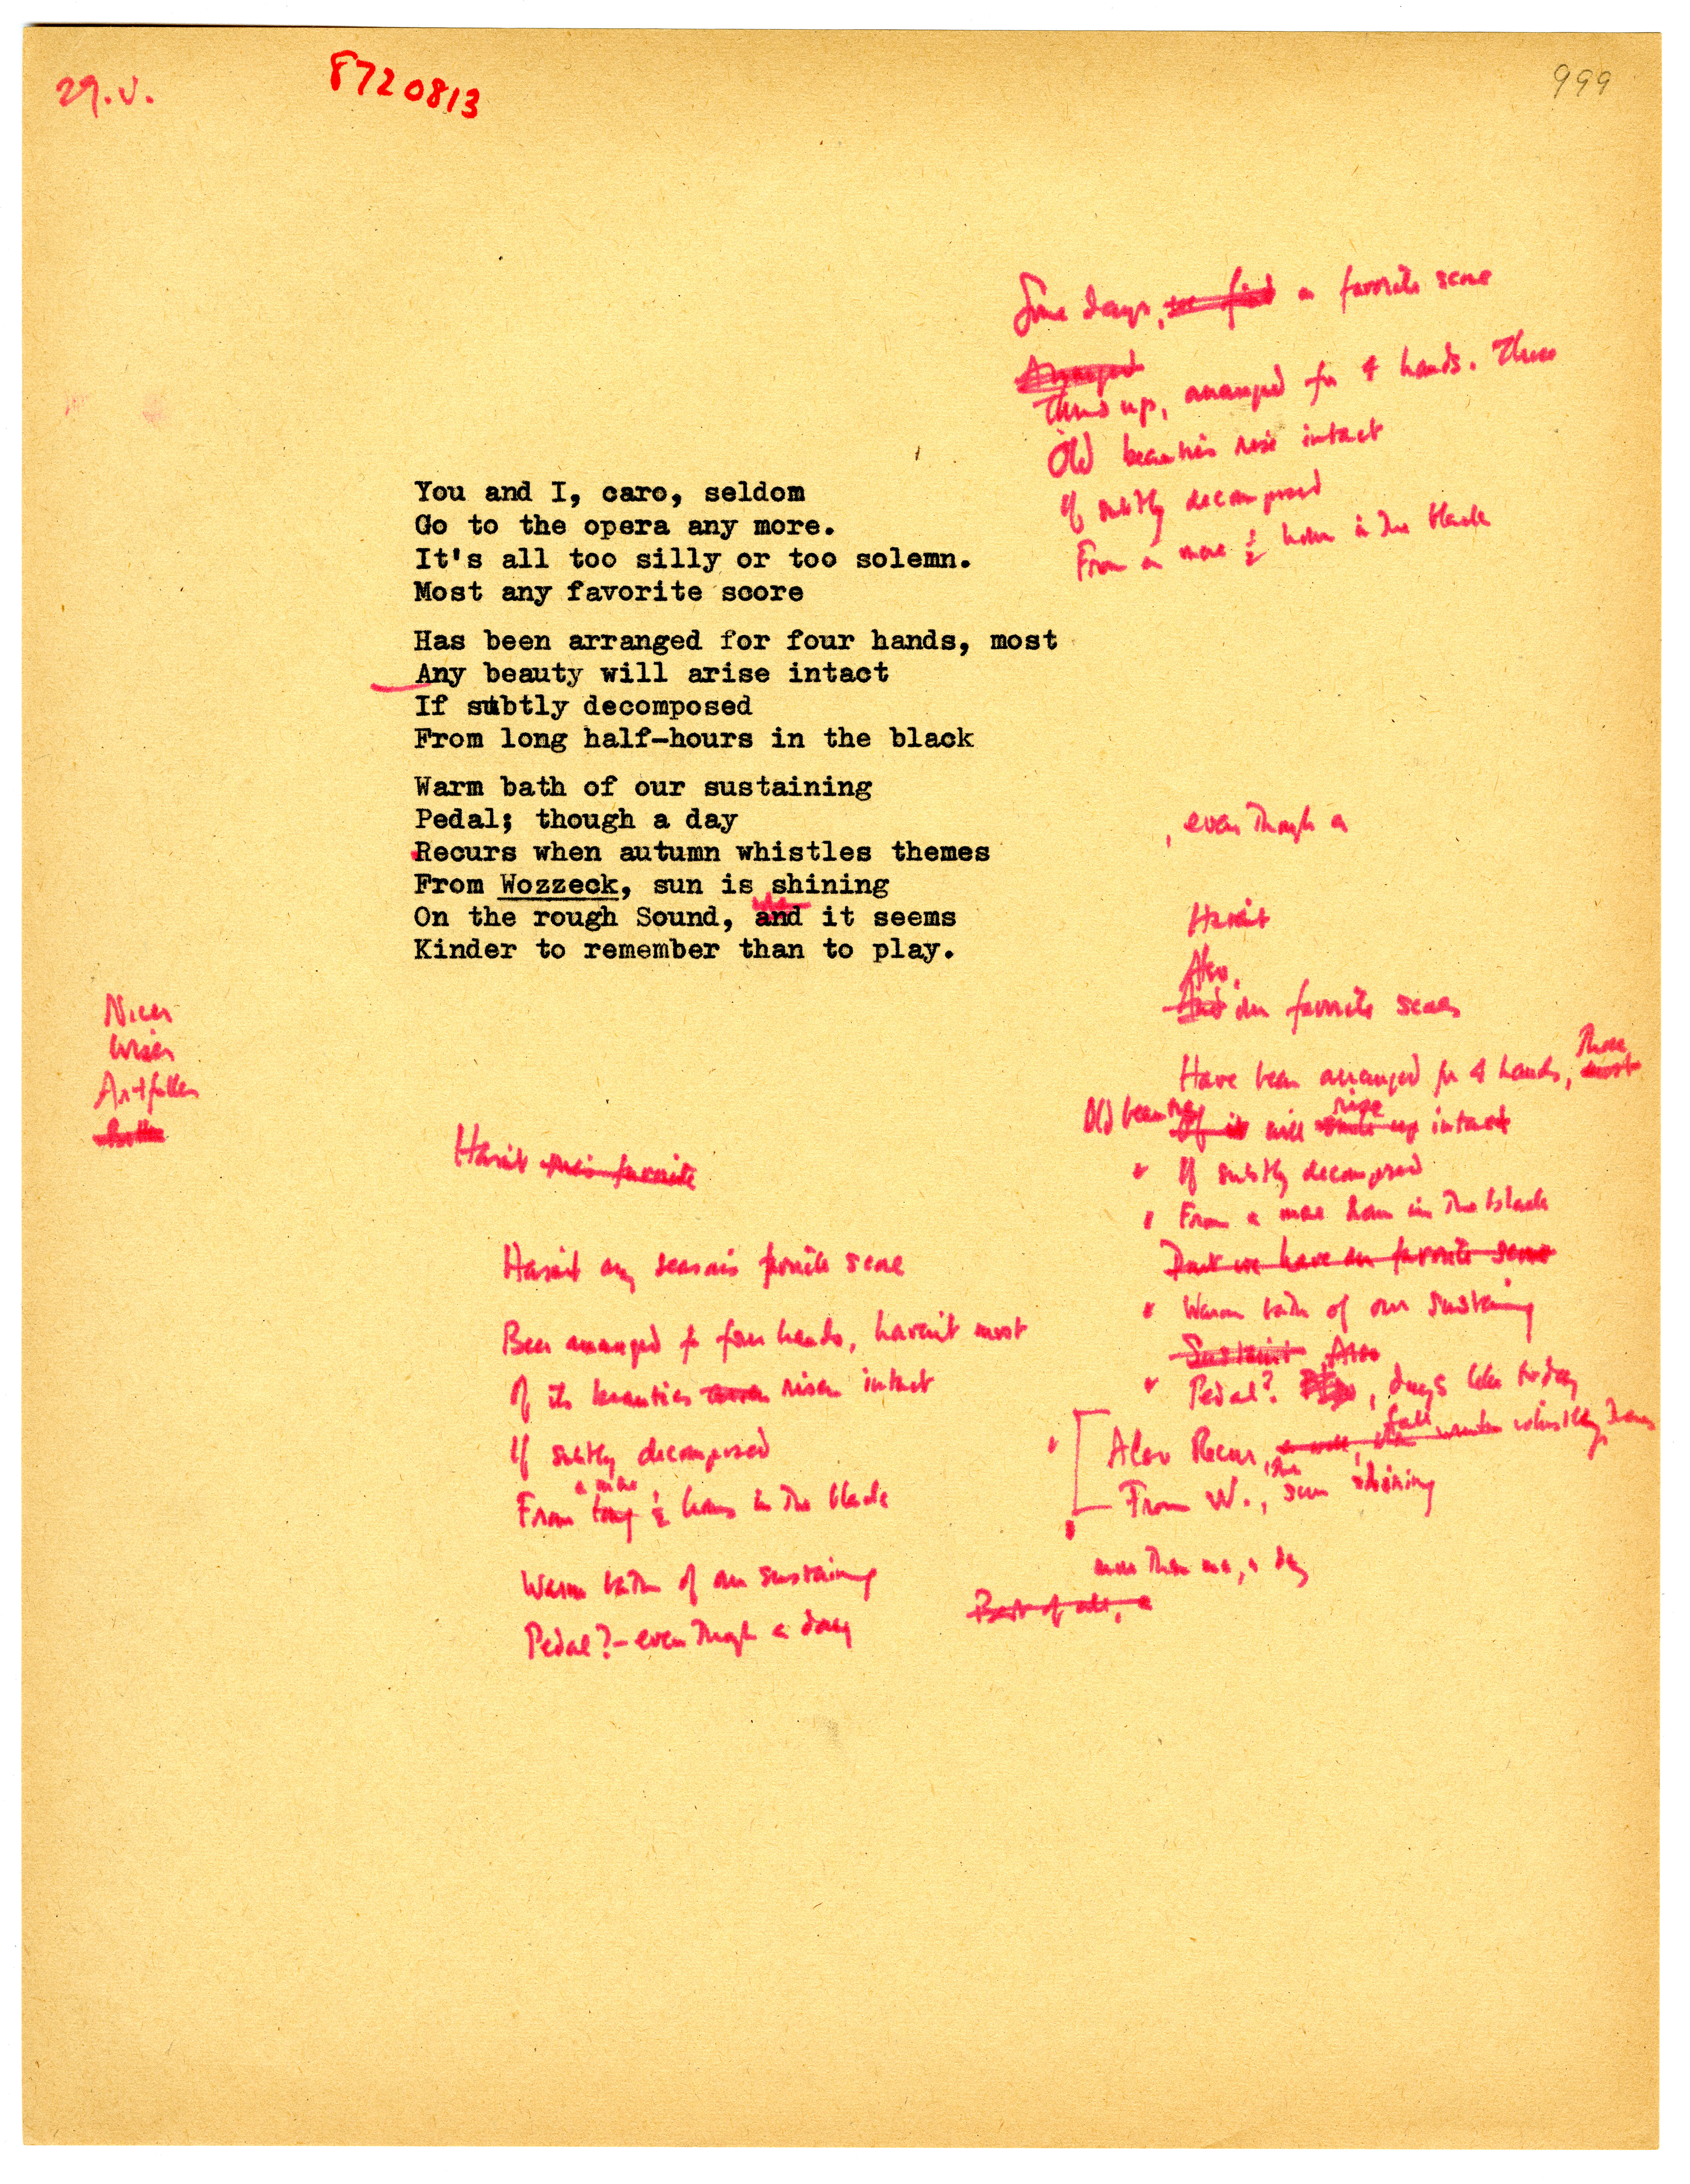 29.V.
8720813
999
Some days, a favorite score
Arranged
Thuds up, arranged for 4 hands. Those
Old beauties rise intact
If subtly decomposed
From a mere ½ hour in the black
You and I, caro, seldom
Go to the opera any more.
It's all too silly or too solemn.
Most any favorite score
Has been arranged for four hands, most
Any beauty will arise intact
If subtly decomposed
From long half-hours in the black
Warm bath of our sustaining
Pedal; though a day
Recurs when autumn whistles themes
From Wozzeck, sun is shining
On the rough Sound, and it seems
Kinder to remember than to play.
, even though a
Haven't
Also,
And our favorite scores
Have been arranged for 4 hands, most those
Old beauties Of it will rise intact
If subtly decomposed
From a mere hour in the black
Don't we have our favorite scores
Warm bath of our sustaining
Sustaint Also
Pedal? , days like today
Also Recur, fall winter whistling themes
From W., the sun shining
more than one, a day
Best of all, a
Nicer
Wiser
Artfuller
Better
Hasn't this favorite
Hasn't any season's favorite score
Been arranged for four hands, haven't most
Of its beauties risen intact
If subtly decomposed
From long a mere ½ hours in the black
Warm bath of our sustaining
Pedal?—even though a day